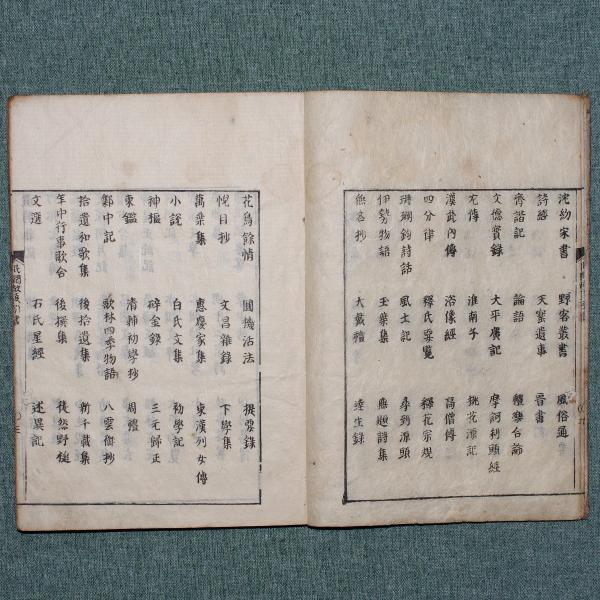 沈約家書 野客叢書 風俗通
詩經 天寶遺事 晉書
齊諧記 論語
文德實錄 太平廣記 摩訶利頭經
尤傳 淮南子 桃花源記
漢武內傳 浴像經 高僧傳
四分律 釋氏要覽 釋花宗規
珊瑚鈎詩話 風土記
伊勢物語 玉葉集 題詩集
無名抄 大戴禮 達生錄
花鳥餘情 圓機活法 撮要錄
悅目抄 文昌雜錄 下學集
萬葉集 惠慶家集 東漢列女傳
小說 白氏文集 初學記
神樞 碎金錄 三元歸正
東鑑 清輔初學抄 周禮
鄴中記 歌林四季物語 八雲御抄
拾遺和歌集 後拾遺集 新千載集
年中行事歌合 後撰集 徒然野槌
文選 石氏星經 述異記